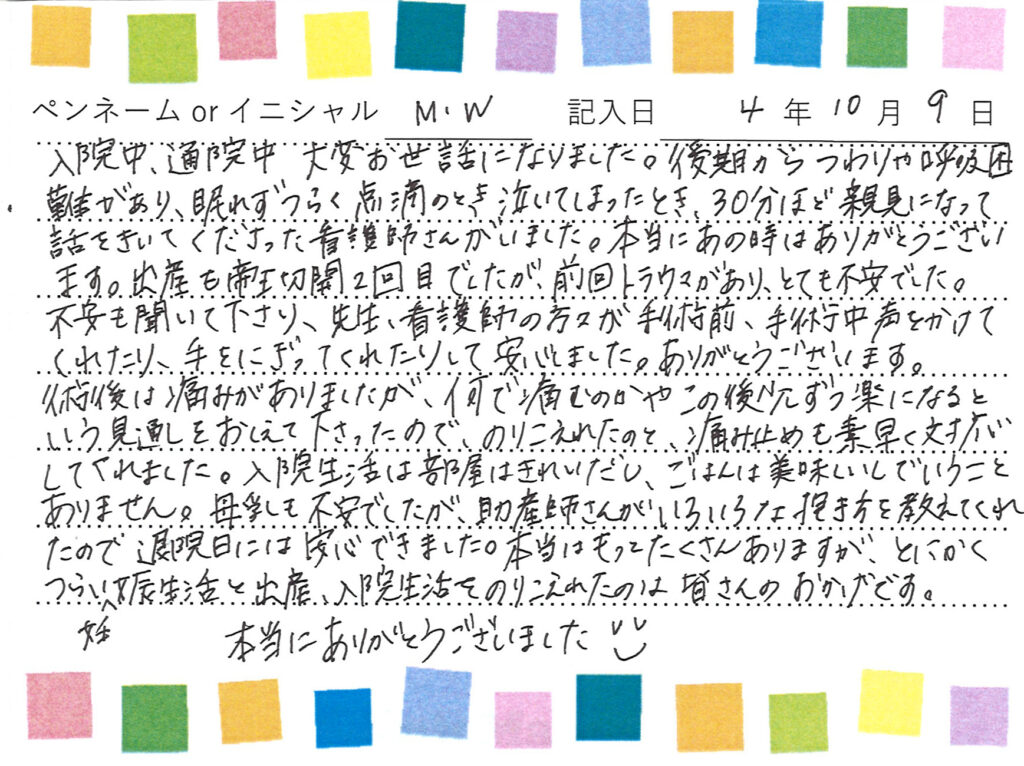 ペンネーム or イニシャル M・W 記入日 4年10月9日
入院中、通院中 大変お世話になりました。後期からつわりや呼吸困
難があり、眠れずつらく点滴のとき泣いてしまったとき、30分ほど親見になって
話をきいてくださった看護師さんがいました。本当にあの時はありがとうござい
ます。出産も帝王切開2回目でしたが、前回トラウマがあり、とても不安でした。
不安も聞いて下さり、先生、看護師の方々が手術前、手術中声をかけて
くれたり、手をにぎってくれたりして安心しました。ありがとうございます。
術後は痛みがありましたが、何で痛むのかやこの後少しずつ楽になると
いう見通しをおしえて下さったので、のりこえれたのと、痛み止めも素早く対応
してくれました。入院生活は部屋はきれいだし、ごはんは美味いしでいうこと
ありません。母乳も不安でしたが、助産師さんがいろいろな抱き方を教えてくれ
たので退院日には安心できました。本当はもってたくさんありますが、とにかく
つらい妊娠生活と出産、入院生活をのりこえれたのは皆さんのおかげです。
本当にありがとうございました